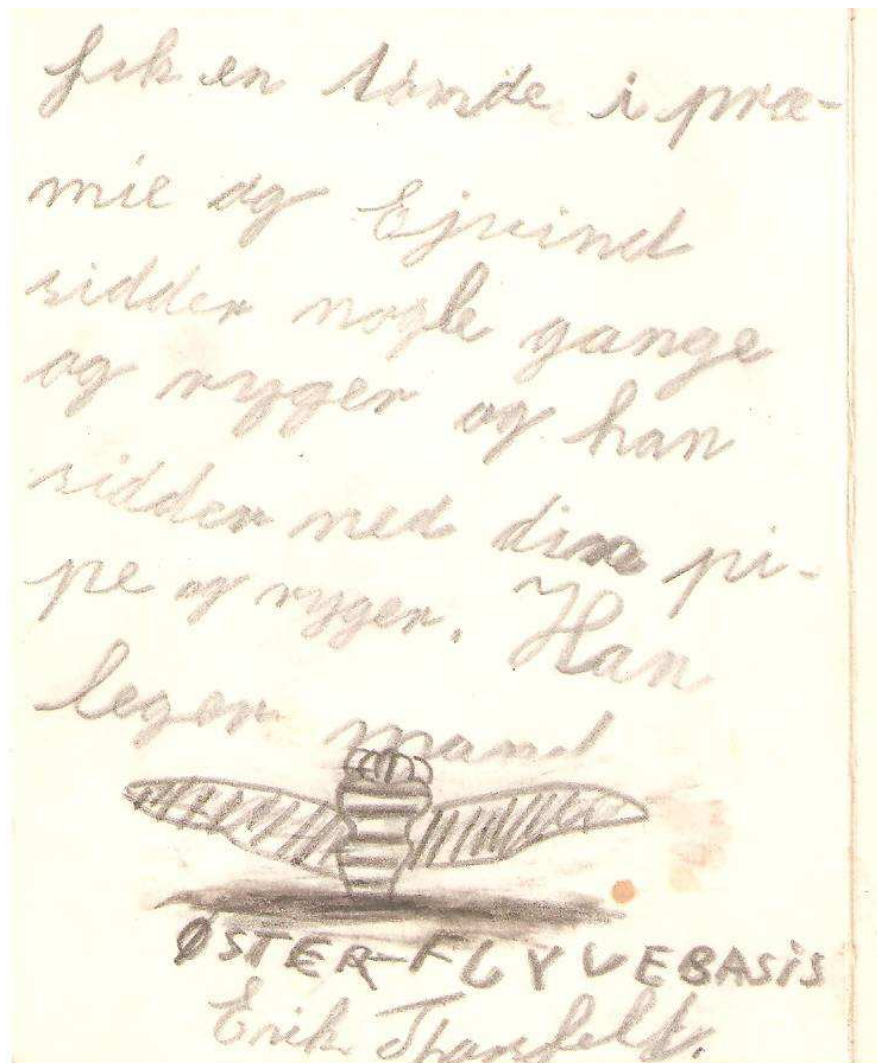 fik en tønde i præ-
mie og Ejvind
sidder nogle gange
og ryger og han
sidder med din pi-
pe og ryger. Han
leger mand
ØSTER-FLYVEBASIS
Erik